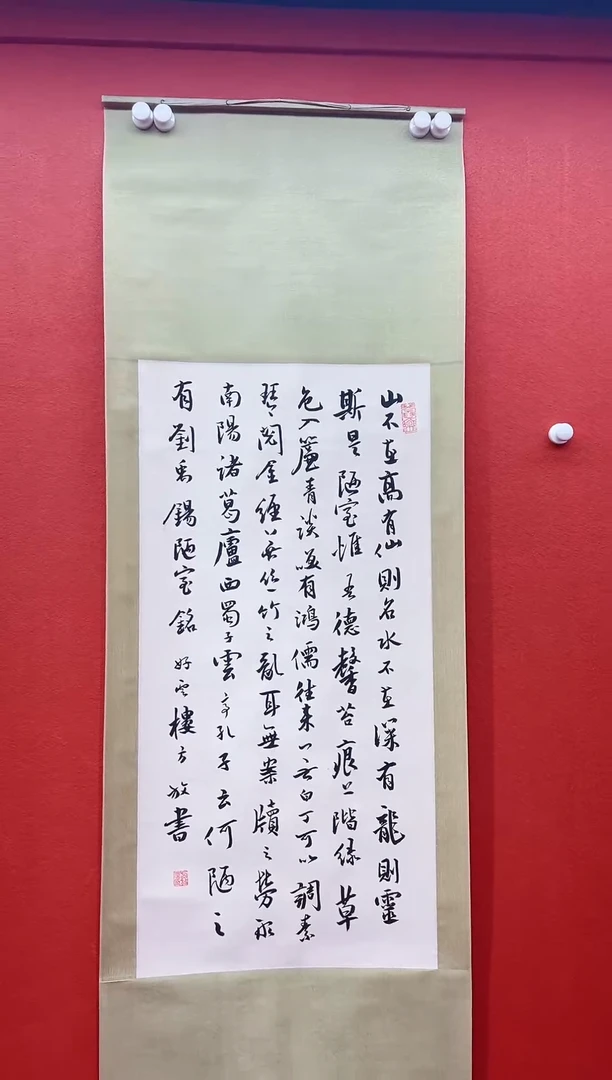 山不在高有仙則名水不在深有龍則靈
斯是陋室惟吾德馨苔痕上階緑草
色入簾青談笑有鴻儒往来无白丁可以調素
琴閲金經无丝竹之亂耳無案牘之勞形
南陽諸葛廬西蜀子雲亭孔子云何陋之
有劉禹錫陋室銘 好雲樓方放書